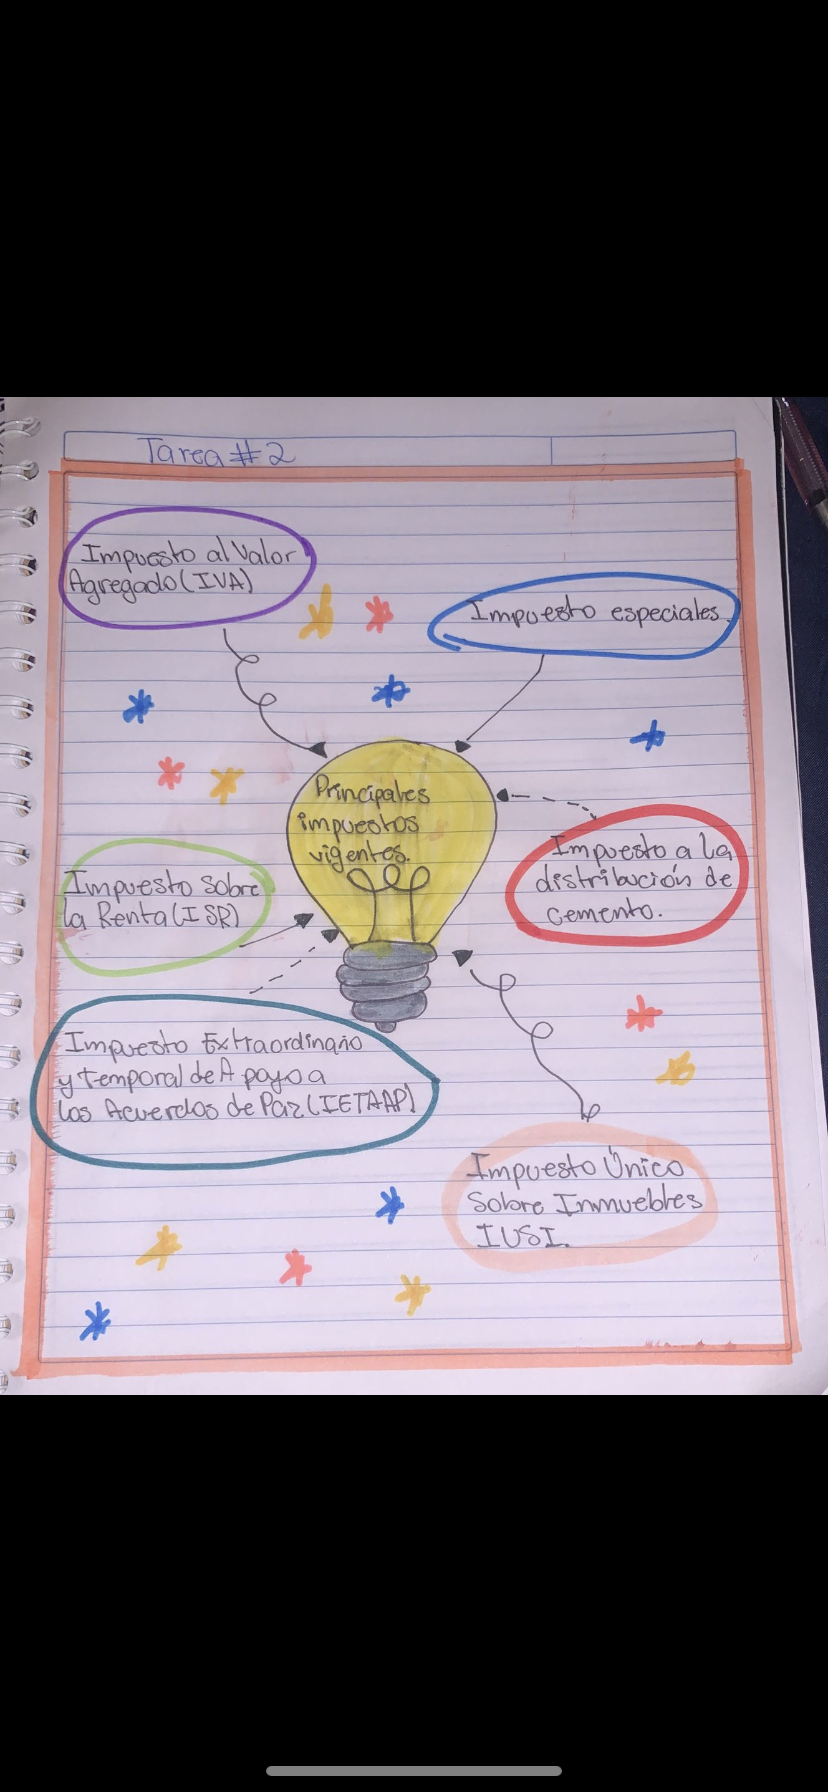 Tarea #2
Impuesto al Valor
Agregado (IVA)
Impuesto especiales.
Principales
impuestos
vigentes.
Impuesto a la
distribución de
cemento.
Impuesto sobre
la Renta (ISR)
Impuesto Extraordinario
y temporal de Apoyo a
los Acuerdos de Paz (IETAAP)
Impuesto Único
Sobre Inmuebles
IUSI.